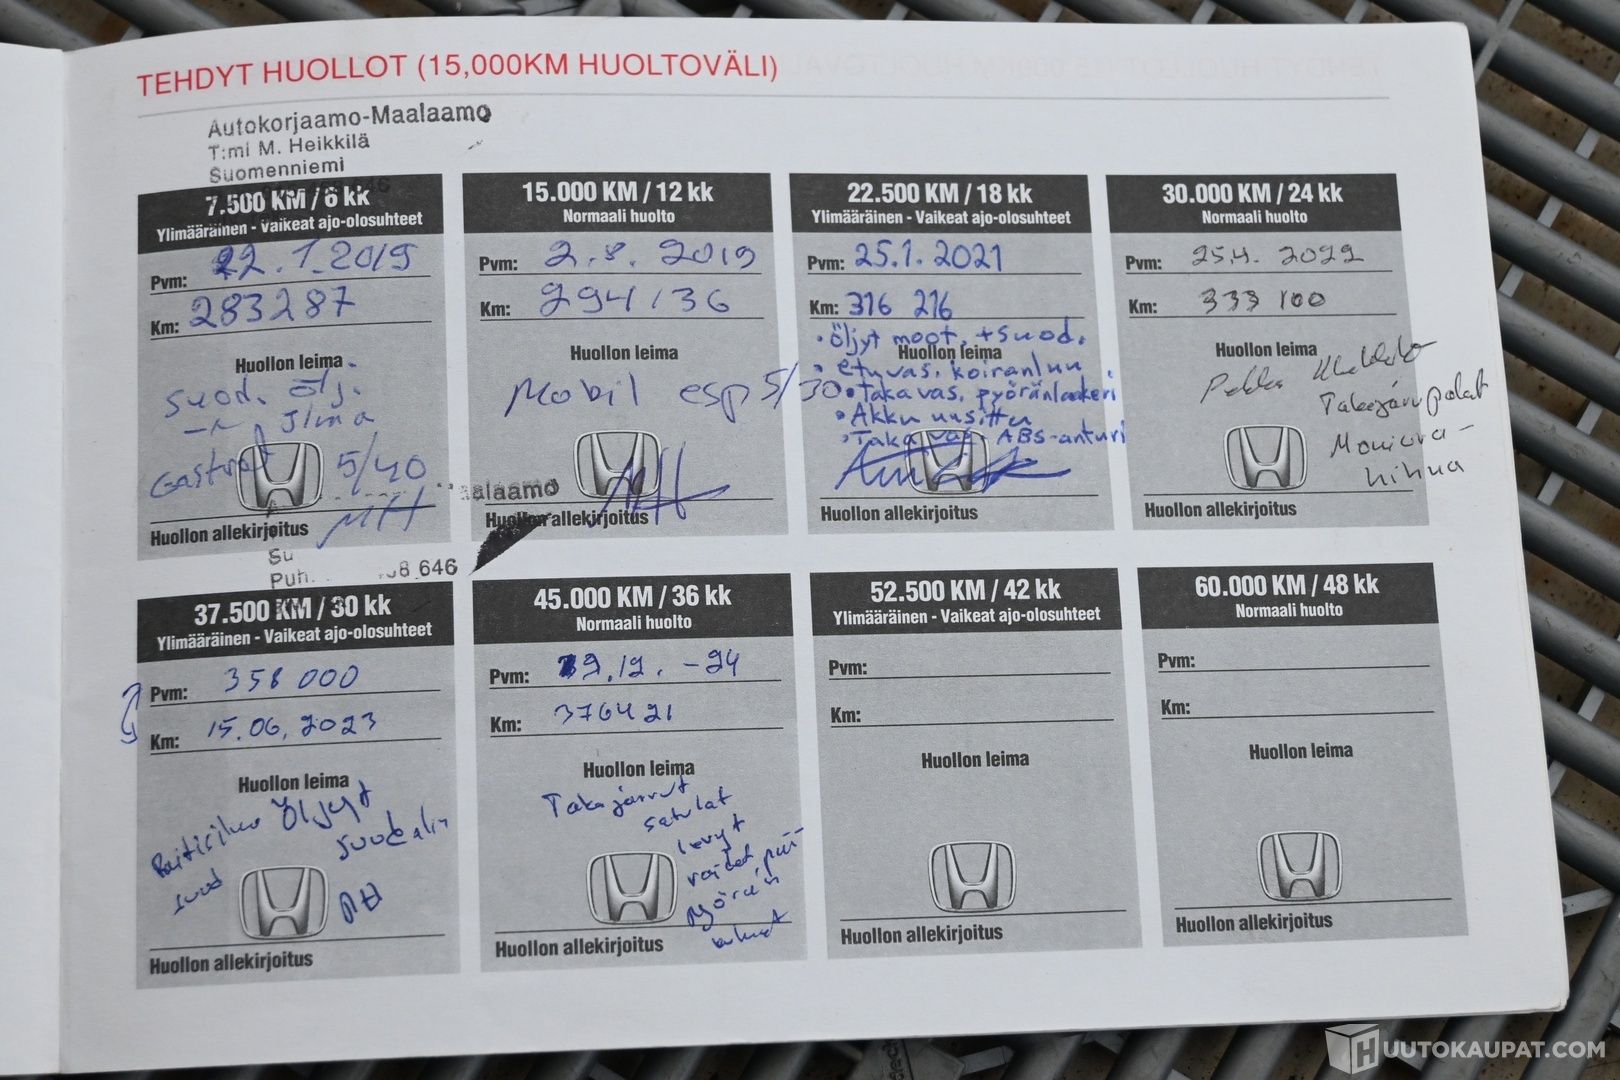 TEHDYT HUOLLOT (15,000KM HUOLTOVÄLI)
Autokorjaamo-Maalaamo
T:mi M. Heikkilä
Suomenniemi
7.500 KM / 6 kk
Ylimääräinen - Vaikeat ajo-olosuhteet
Pvm: 22.1.2019
Km: 283287
Huollon leima
suod. ölj.
ilma
5/40
MH
Huollon allekirjoitus
15.000 KM / 12 kk
Normaali huolto
Pvm: 2.8.2019
Km: 294136
Huollon leima
Mobil esp 5/30
MH
Huollon allekirjoitus
22.500 KM / 18 kk
Ylimääräinen - Vaikeat ajo-olosuhteet
Pvm: 25.1.2021
Km: 316 216
Huollon leima
• Öljyt moot. + suod.
• etuvas. koiranluu
• Taka vas. pyöränlaakeri
• Akku uusittu
• Taka vas. ABS-anturi
Huollon allekirjoitus
30.000 KM / 24 kk
Normaali huolto
Pvm: 25.4. 2022
Km: 333 100
Huollon leima
Pekka
Takajarrupalat
Moniura-
hihna
Huollon allekirjoitus
aalaamo
Su
Puh.
08 646
37.500 KM / 30 kk
Ylimääräinen - Vaikeat ajo-olosuhteet
Pvm: 358 000
Km: 15.06.2023
Huollon leima
Öljyt
suodatin
Raitisilma
suod
Huollon allekirjoitus
45.000 KM / 36 kk
Normaali huolto
Pvm: 29.12.-24
Km: 376421
Huollon leima
Takajarrut
satulat
levyt
raidet.pää
pyörän
Huollon allekirjoitus
52.500 KM / 42 kk
Ylimääräinen - Vaikeat ajo-olosuhteet
Pvm:
Km:
Huollon leima
Huollon allekirjoitus
60.000 KM / 48 kk
Normaali huolto
Pvm:
Km:
Huollon leima
Huollon allekirjoitus
HUUTOKAUPAT.COM